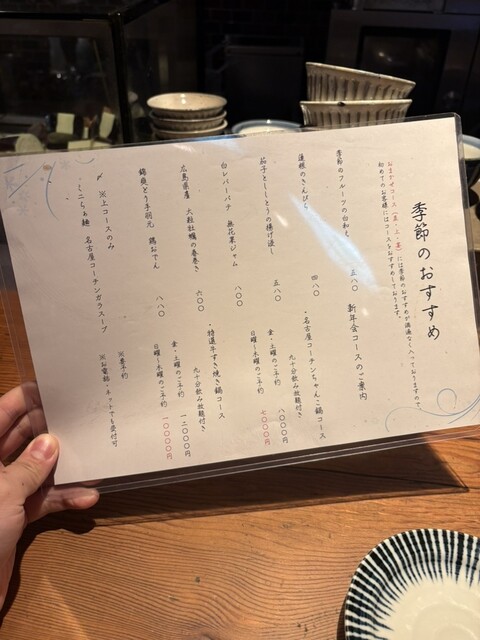 季節のおすすめ
おまかせコース(夏・三・喜)には季節のおすすめが満遍なく入っておりますので、
初めてのお客様にはコースをおすすめしております。
季節のフルーツの白和え 五八〇
蓮根のきんぴら 四八〇
茄子とししとうの揚げ浸し 五八〇
白レバーパテ 無花果ジャム 八〇〇
広島県産 大粒牡蠣の春巻き 六〇〇
錦爽どり手羽元 鶏おでん 八八〇
〆 ※上コースのみ
ミニらぁ麺 名古屋コーチンガラスープ
新年会コースのご案内
・名古屋コーチンちゃんこ鍋コース
九十分飲み放題付き
金・土曜のご予約 八〇〇〇円
日曜〜木曜のご予約 七〇〇〇円
・特選牛すき焼き鍋コース
九十分飲み放題付き
金・土曜のご予約 一二〇〇〇円
日曜〜木曜のご予約 一〇〇〇〇円
※要予約
※お電話・ネットでも受付可